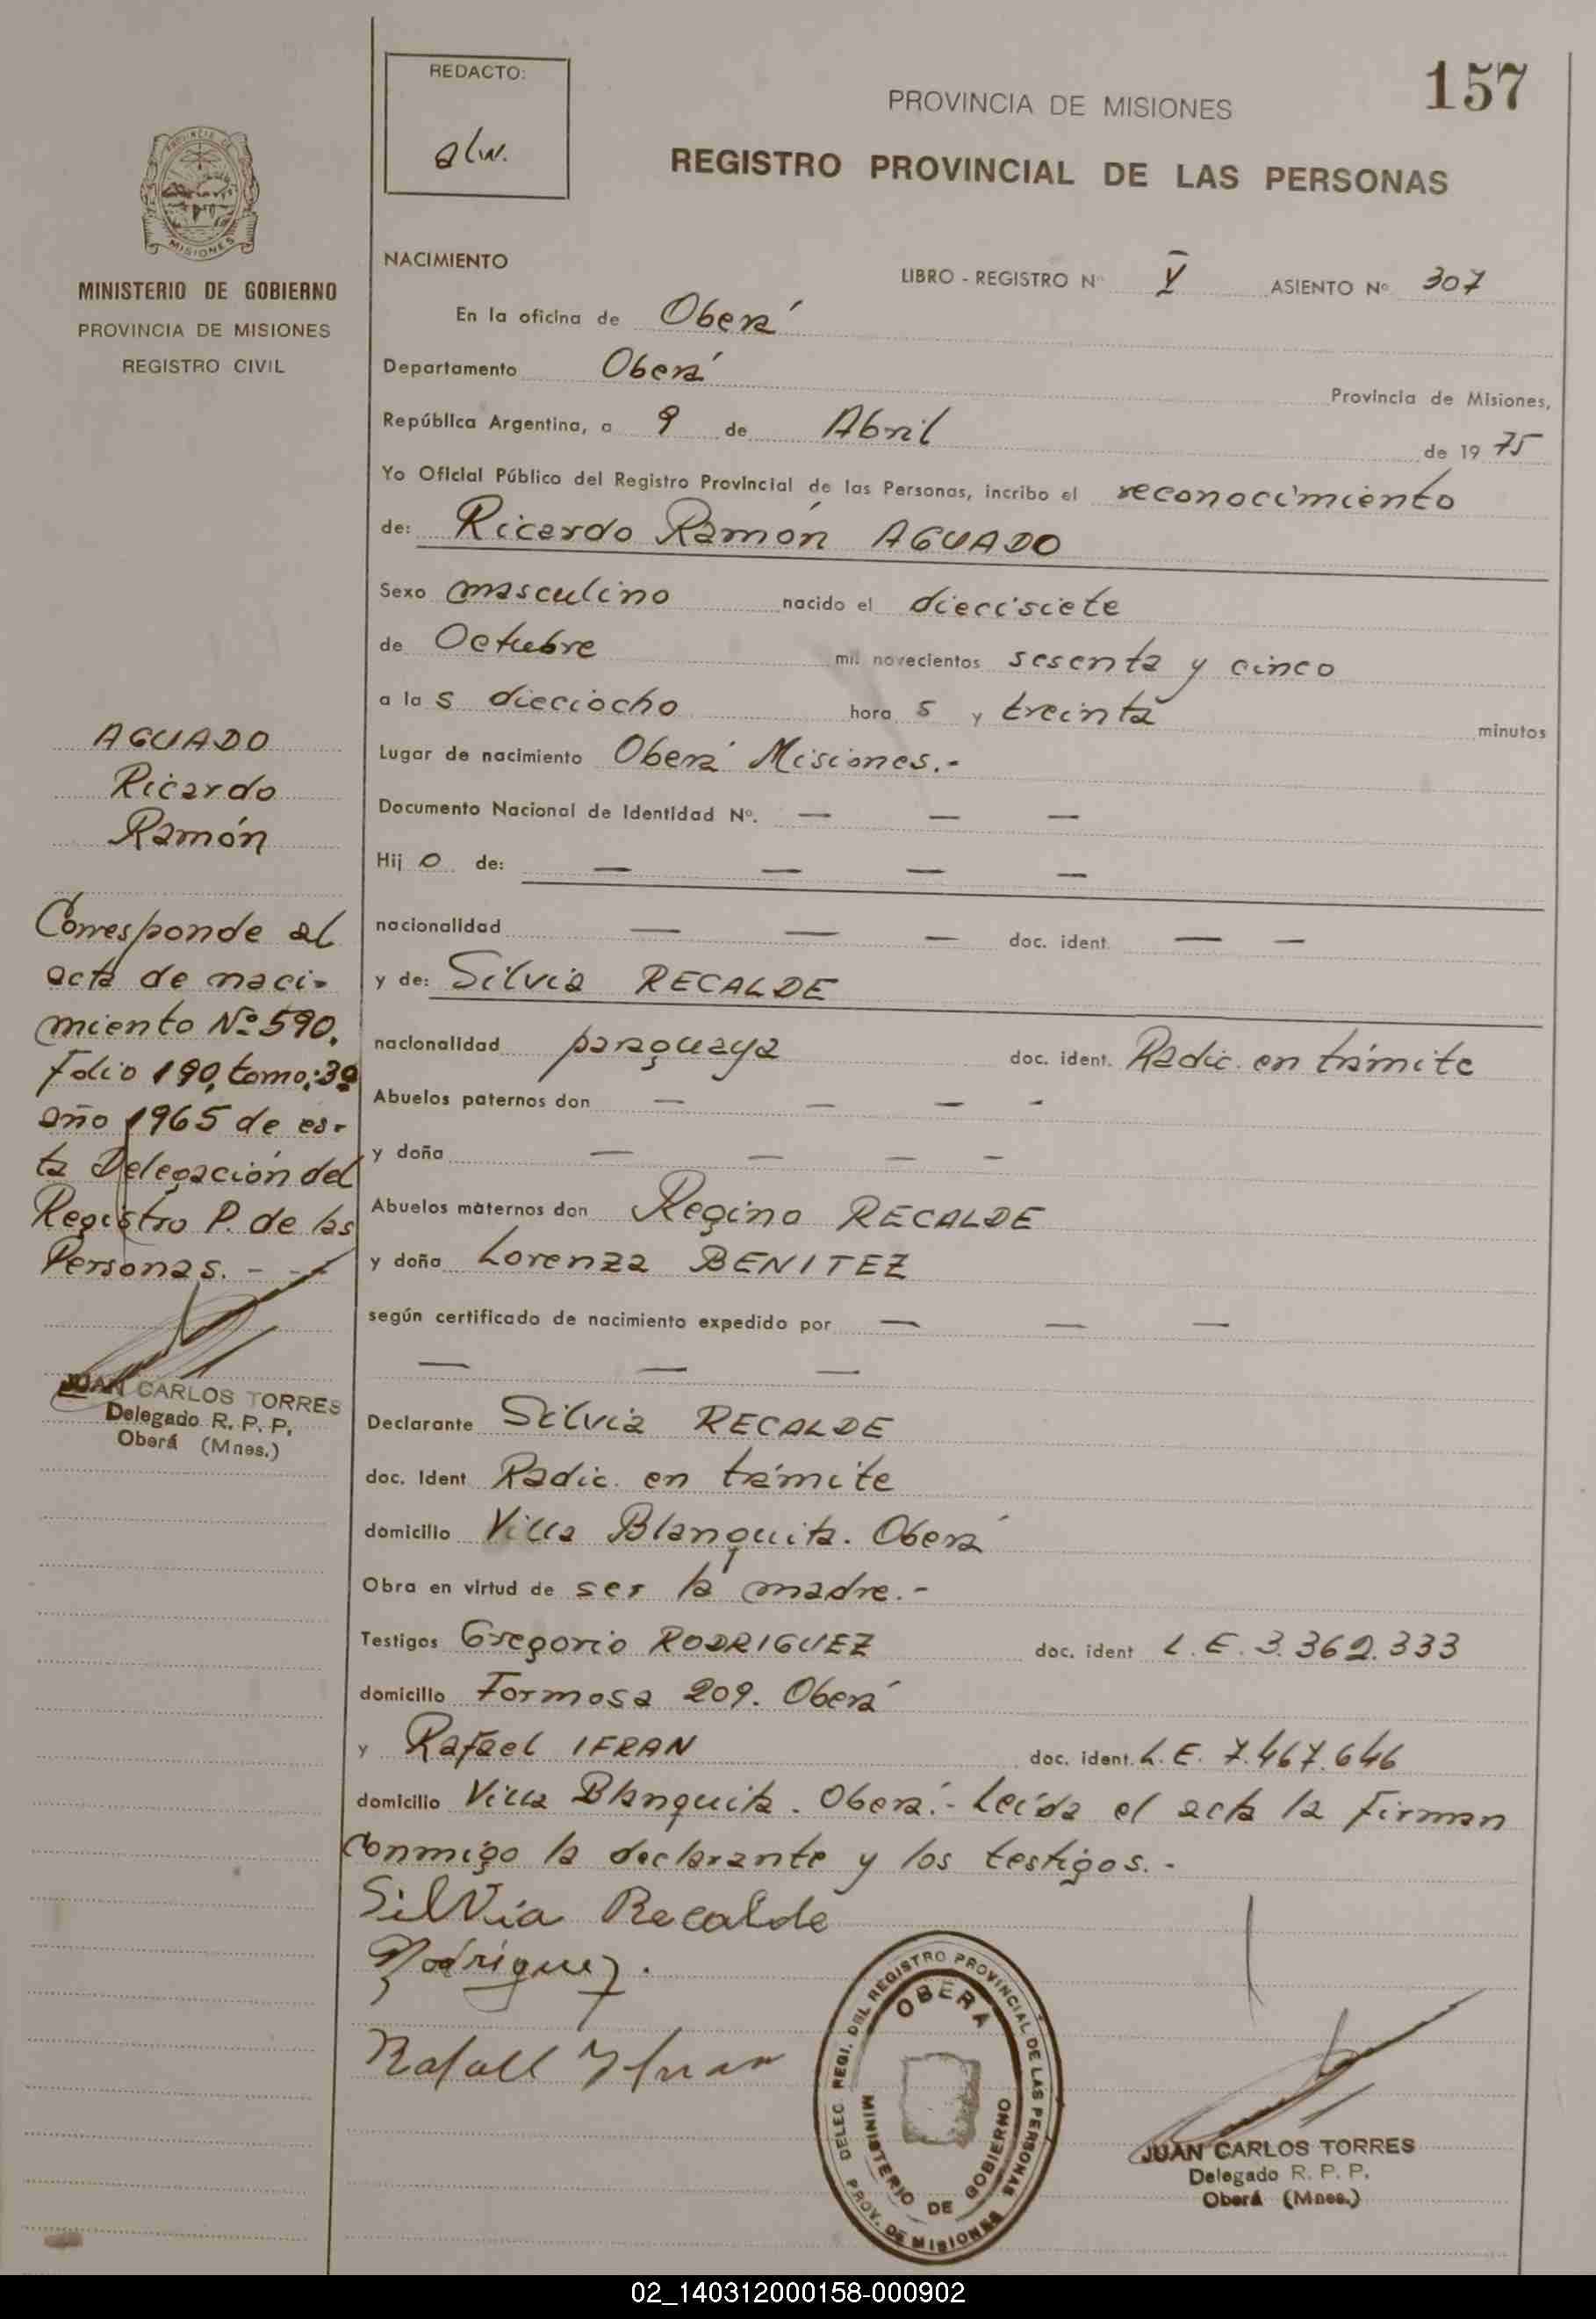 REDACTO:
alw.
157
PROVINCIA DE MISIONES
REGISTRO PROVINCIAL DE LAS PERSONAS
PROVINCIA DE
MISIONES
MINISTERIO DE GOBIERNO
PROVINCIA DE MISIONES
REGISTRO CIVIL
NACIMIENTO
LIBRO - REGISTRO Nº V ASIENTO Nº 307
En la oficina de Oberá
Departamento Oberá Provincia de Misiones,
República Argentina, a 9 de Abril de 1975
Yo Oficial Público del Registro Provincial de las Personas, incribo el reconocimiento
de: Ricardo Ramón AGUADO
Sexo masculino nacido el diecisiete
de Octubre mil novecientos sesenta y cinco
a las dieciocho horas y treinta minutos
Lugar de nacimiento Oberá Misiones.-
Documento Nacional de Identidad Nº. — — —
Hijo de: — — — —
nacionalidad — — — doc. ident. — —
y de: Silvia RECALDE
nacionalidad paraguaya doc. ident. Radic. en trámite
Abuelos paternos don — — — -
y doña — — — —
Abuelos maternos don Regino RECALDE
y doña Lorenza BENITEZ
según certificado de nacimiento expedido por — — —
— — —
Declarante Silvia RECALDE
doc. Ident Radic. en trámite
domicilio Villa Blanquita. Oberá
Obra en virtud de ser la madre.-
Testigos Gregorio RODRIGUEZ doc. ident L.E. 3.362.333
domicilio Formosa 209. Oberá
y Rafael IFRAN doc. ident. L.E. 7.467.646
domicilio Villa Blanquita. Oberá.- Leída el acta la firman
conmigo la declarante y los testigos.-
Silvia Recalde
Rodriguez.
Rafael Yfran
AGUADO
Ricardo
Ramón
Corresponde al
acta de naci-
miento Nº 590,
Folio 190, tomo: 3º
año 1965 de es-
ta Delegación del
Registro P. de las
Personas. - - -
JUAN CARLOS TORRES
Delegado R. P. P.
Oberá (Mnes.)
DELEC REGI. DEL REGISTRO PROVINCIAL DE LAS PERSONAS
PROV. DE MISIONES
OBERA
MINISTERIO DE GOBIERNO
JUAN CARLOS TORRES
Delegado R. P. P.
Oberá (Mnes.)
02_140312000158-000902